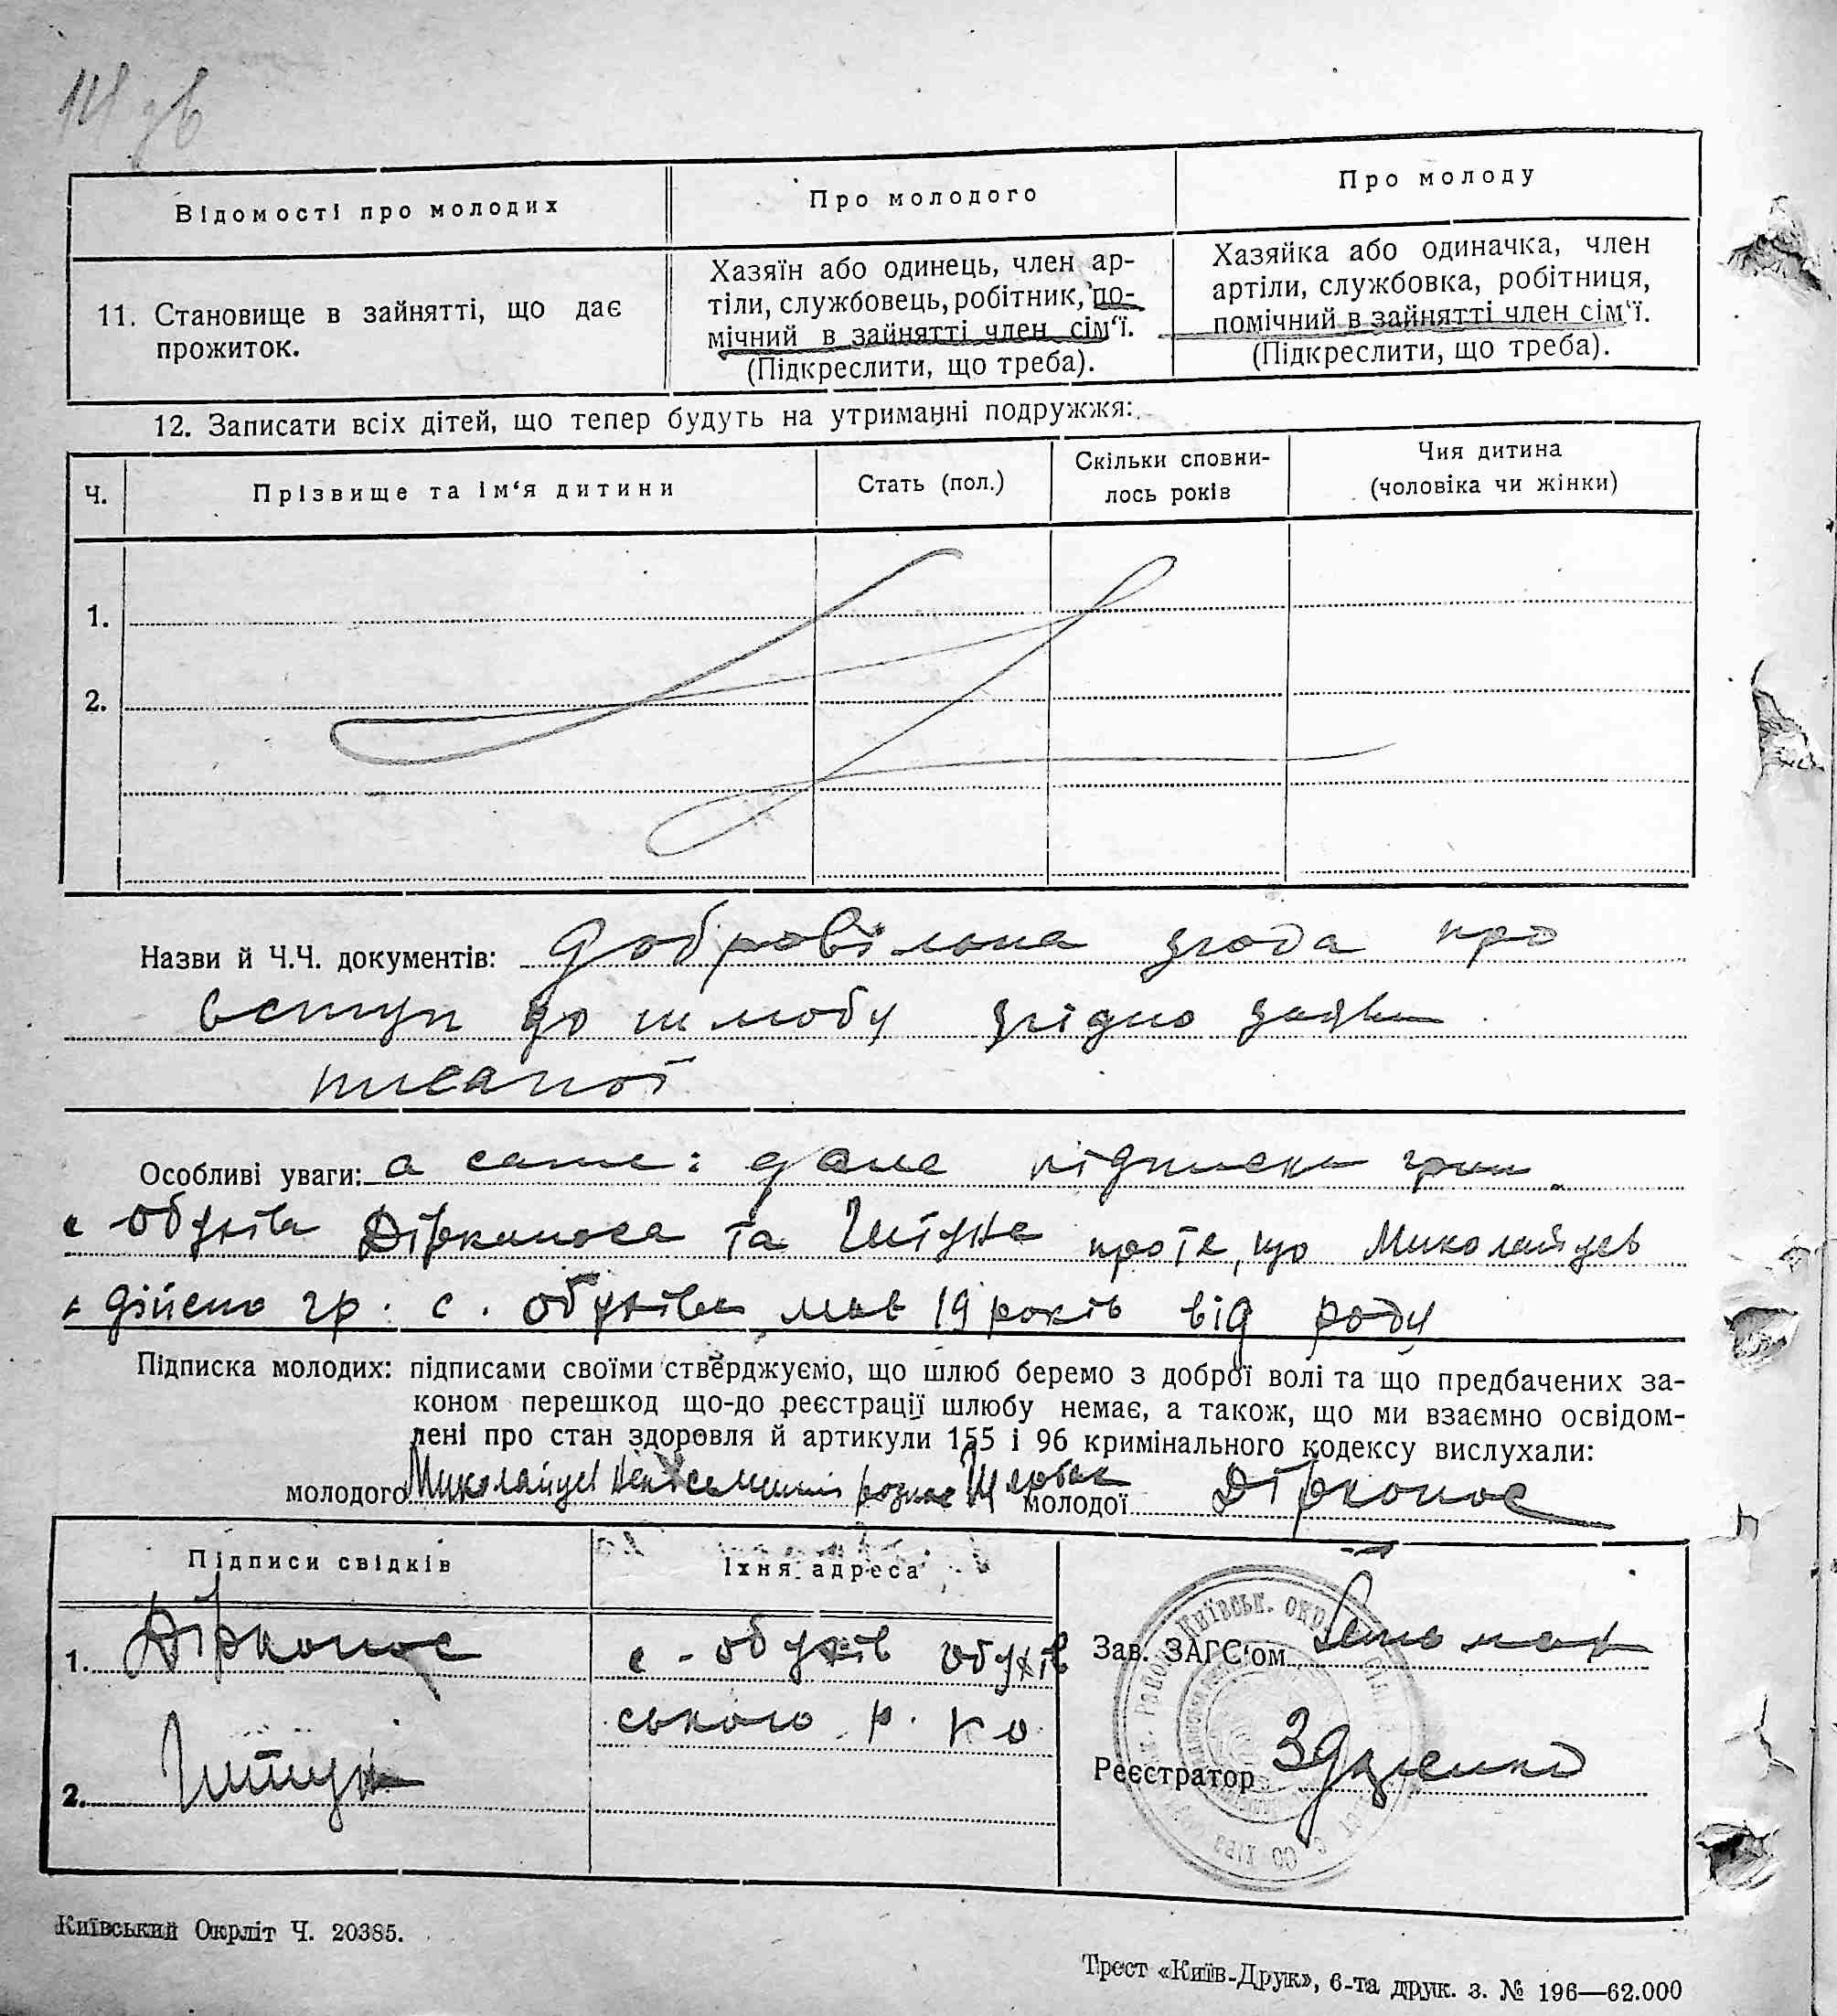 Відомості про молодих
Про молодого
Про молоду
11. Становище в зайнятті, що дає
прожиток.
Хазяїн або одинець, член ар-
тіли, службовець, робітник, по-
мічний в зайнятті член сім‘ї.
(Підкреслити, що треба).
Хазяйка або одиначка, член
артіли, службовка, робітниця,
помічний в зайнятті член сім‘ї.
(Підкреслити, що треба).
12. Записати всіх дітей, що тепер будуть на утриманні подружжя:
Ч.
Прізвище та ім‘я дитини
Стать (пол.)
Скільки сповни-
лось років
Чия дитина
(чоловіка чи жінки)
1.
2.
Назви й Ч.Ч. документів: Добровільна згода про
вступ до шлюбу згідно заяви
писаної
Особливі уваги: а саме: дане підписки гром
с Обухів Дірконоса та Штука про те, що Миколайцев
дійсно гр. с. Обухівка мав 19 років від роду
Підписка молодих: підписами своїми стверджуємо, що шлюб беремо з доброї волі та що предбачених за-
коном перешкод що-до реєстрації шлюбу немає, а також, що ми взаємно освідом-
лені про стан здоровля й артикули 155 і 96 кримінального кодексу вислухали:
молодого Миколайцев молодої Дірконос
Підписи свідків
Їхня адреса
1. Дірконос
с - Обухів Обухів
ського р. К о
2. Штук
Зав. ЗАГС‘ом
Реєстратор
Київськ. окр.
Київський Окрліт Ч. 20385.
Трест «Київ-Друк», 6-та друк. з. № 196—62.000